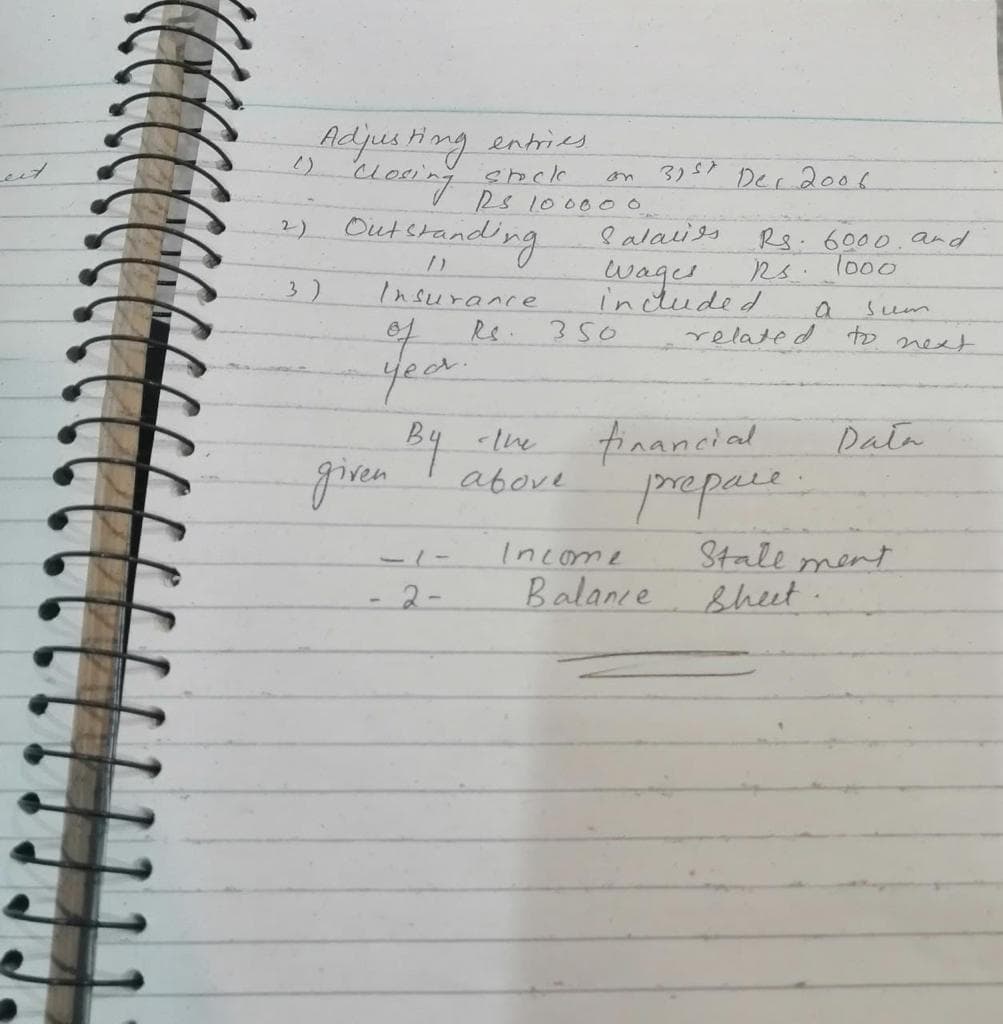 Adjusting entries
1) Closing stock on 31st Dec 2006
Rs 100000
2) Outstanding Salaries Rs. 6000 and
11 wages Rs. 1000
3) Insurance included a sum
of Rs. 350 related to next
year.
By the financial Data
given above prepare.
-1- Income Statement
-2- Balance Sheet.